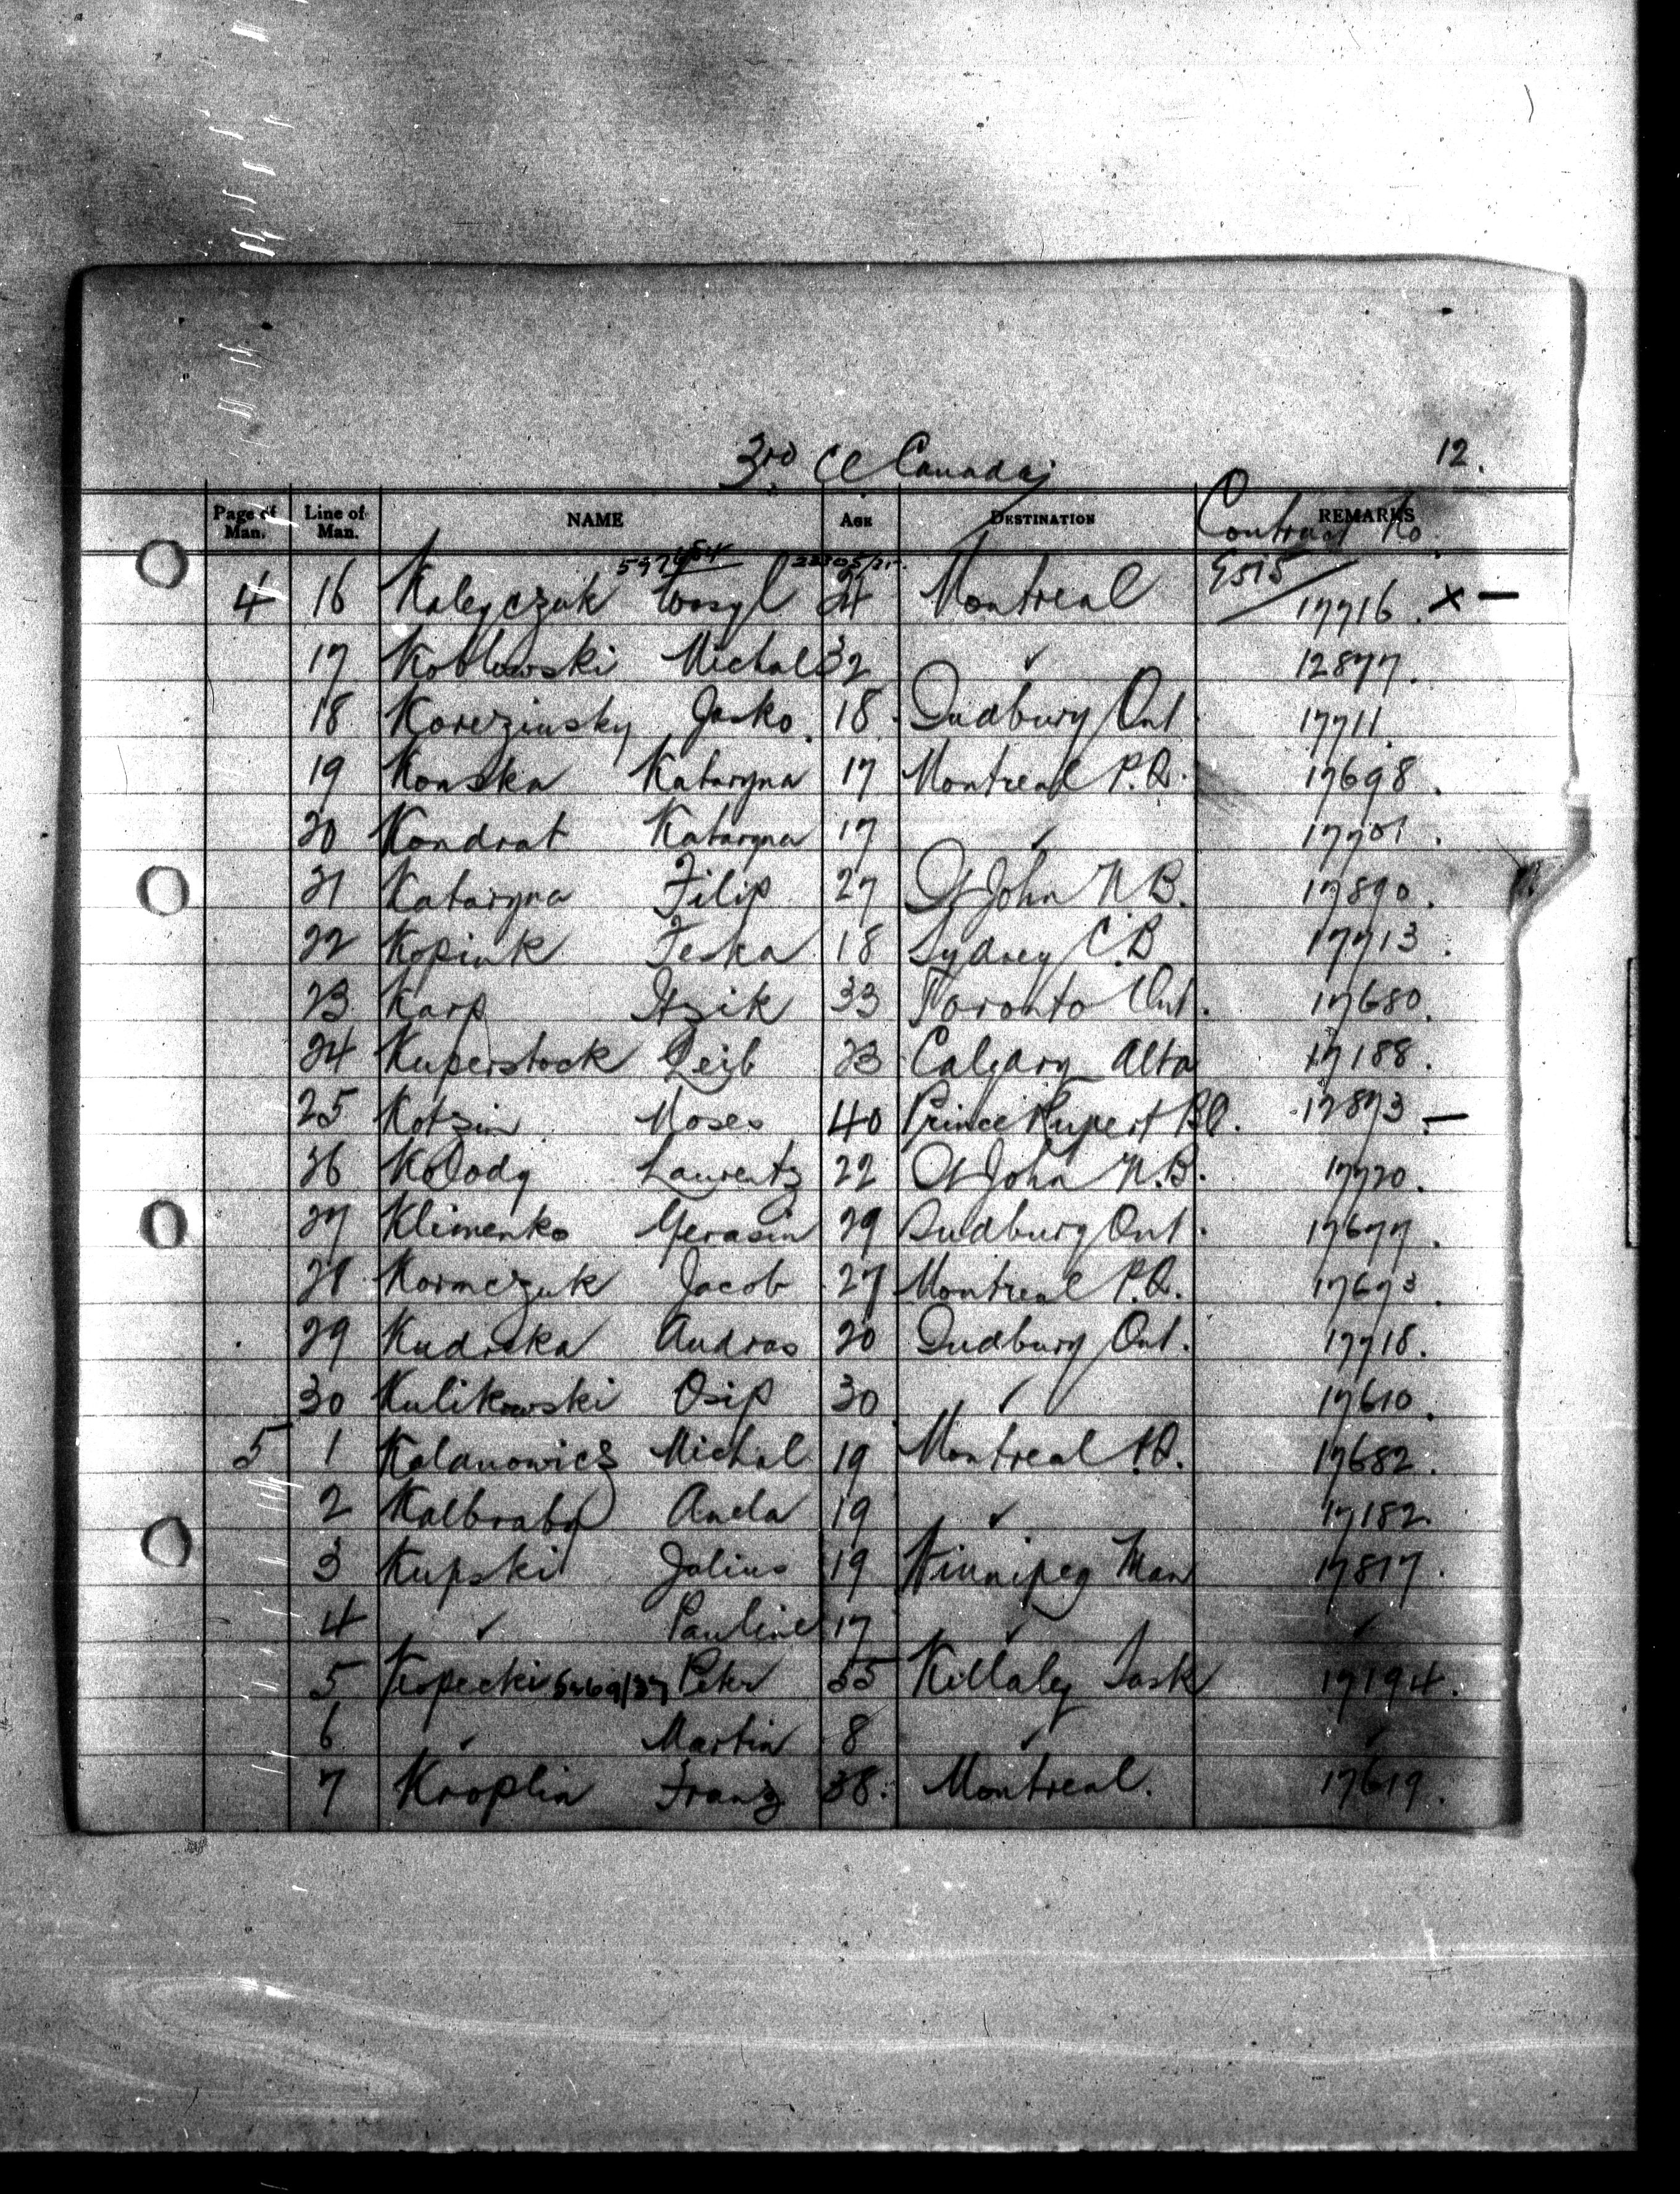 3rd Cl Canada
12.
Page of Man. Line of Man. NAME AGE DESTINATION REMARKS
Contract No.
4 16 Kaleyczuk Wasyl 24 Montreal 17716. x —
17 Koblowski Michal 32 ✓ 12877.
18 Korezinsky Jasko. 18. Sudbury Ont. 17711.
19 Konska Kataryna 17 Montreal P.Q. 17698.
20 Kondrat Kataryna 17 ✓ 17701.
21 Kataryna Filip 27 St John N B. 17890.
22 Kopiuk Feska 18 Sydney C.B 17713.
23 Karp Itzik 33 Toronto Ont. 17680.
24 Kuperstock Leib 23 Calgary Alta 17188.
25 Kotzin Moses 40 Prince Rupert B.C. 12873. —
26 Kolody Laurentz 22 St John N.B. 17720.
27 Klimenko Gerasin 29 Sudbury Ont. 17677.
28 Kormczuk Jacob 27 Montreal P.Q. 17673.
29 Kudrska Andras 20 Sudbury Ont. 17718.
30 Kulikowski Osip 30 ✓ 17610.
5 1 Kalanowicz Michal 19 Montreal P.Q. 17682.
2 Kalbraba Anela 19 ✓ 17182.
3 Kupski Julius 19 Winnipeg Man 17817.
4 ✓ Pauline 17 ✓ ✓
5 Kopecki Peter 55 Killaley Sask 17194.
6 ✓ Martin 8 ✓ ✓
7 Kroplin Franz 38. Montreal. 17619.